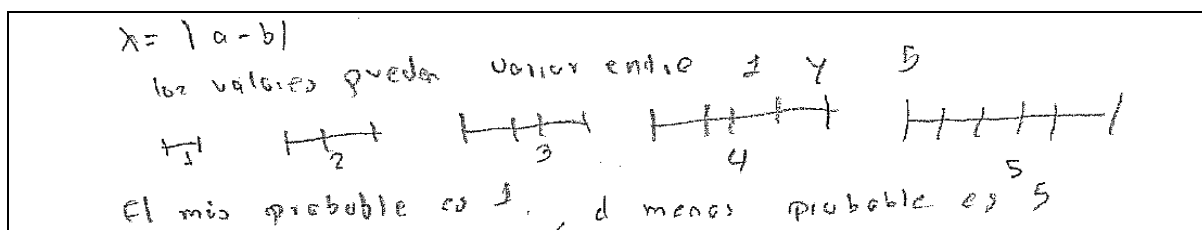 x = |a - b|
los valores pueden variar entre 1 y 5
1 2 3 4 5
El más probable es 1, el menos probable es 5